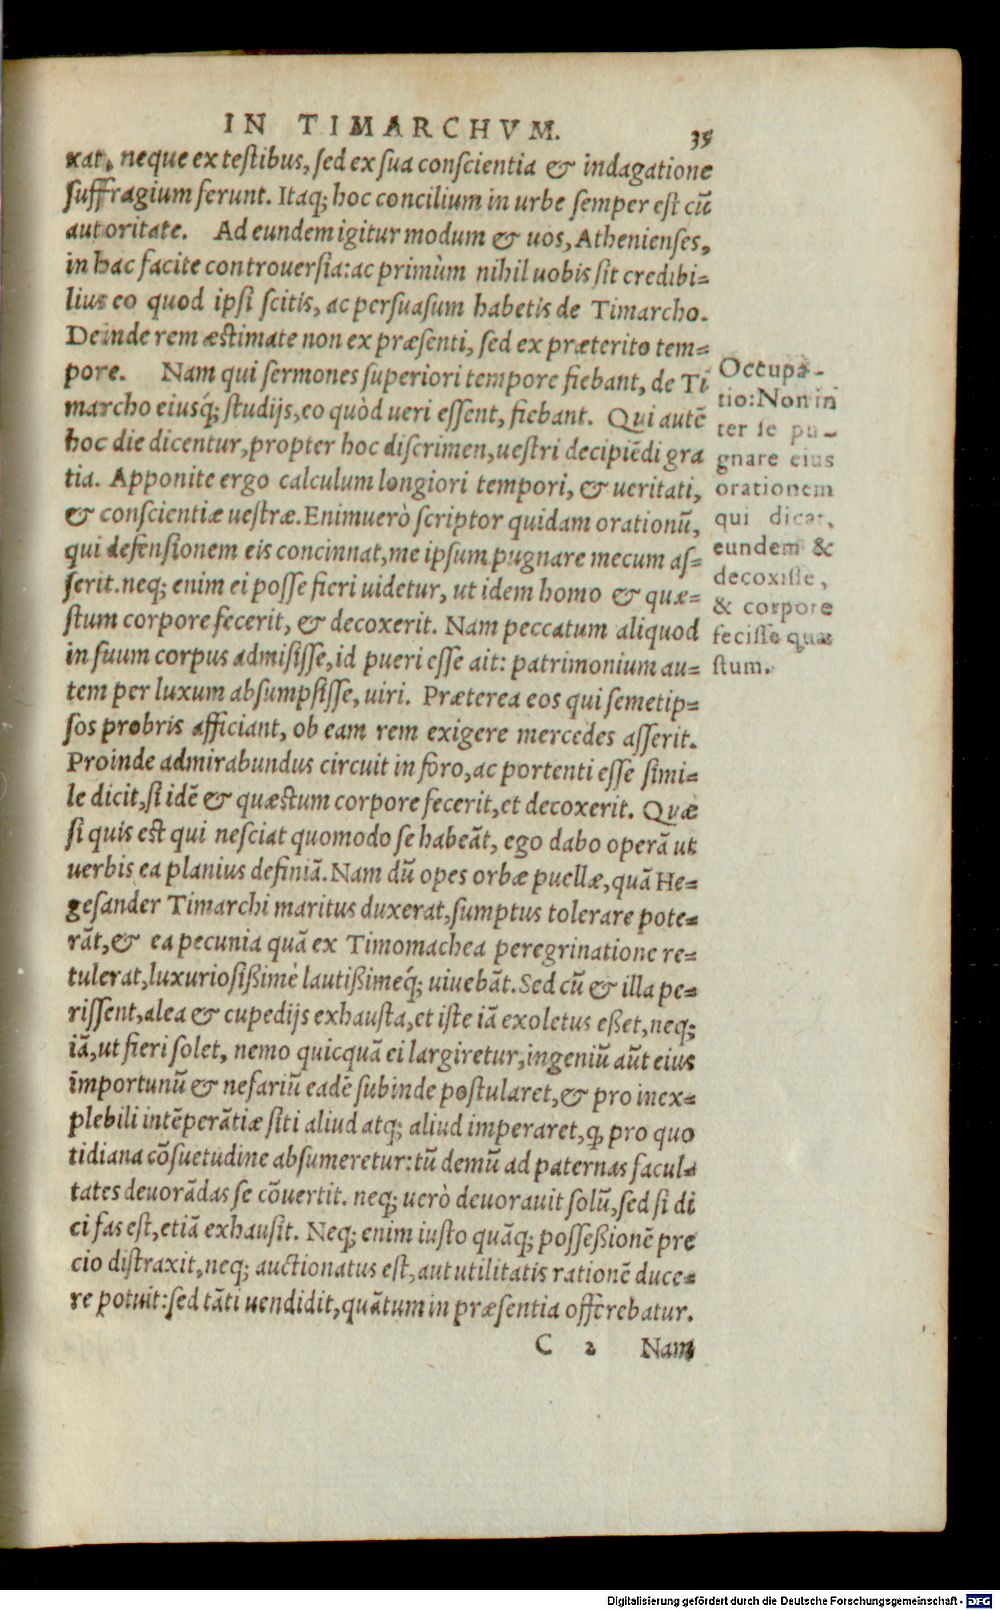 IN TIMARCHVM. 35
xat, neque ex testibus, sed ex sua conscientia & indagatione
suffragium ferunt. Itaq; hoc concilium in urbe semper est cũ
autoritate. Ad eundem igitur modum & uos, Athenienses,
in hac facite controuersia: ac primùm nihil uobis sit credibi-
lius eo quod ipsi scitis, ac persuasum habetis de Timarcho.
Deinde rem æstimate non ex præsenti, sed ex præterito tem-
pore. Nam qui sermones superiori tempore fiebant, de Ti
marcho eiusq́; studijs, eo quòd ueri essent, fiebant. Qui autẽ
hoc die dicentur, propter hoc discrimen, uestri decipiẽdi gra
tia. Apponite ergo calculum longiori tempori, & ueritati,
& conscientiæ uestræ. Enimuerò scriptor quidam orationũ,
qui defensionem eis concinnat, me ipsum pugnare mecum as-
serit. neq; enim ei posse fieri uidetur, ut idem homo & quæ-
stum corpore fecerit, & decoxerit. Nam peccatum aliquod
in suum corpus admisisse, id pueri esse ait: patrimonium au-
tem per luxum absumpsisse, uiri. Præterea eos qui semetip-
sos probris afficiant, ob eam rem exigere mercedes asserit.
Proinde admirabundus circuit in foro, ac portenti esse simi-
le dicit, si idẽ & quæstum corpore fecerit, et decoxerit. Quæ
si quis est qui nesciat quomodo se habeãt, ego dabo operã ut
uerbis ea planius definiã. Nam dũ opes orbæ puellæ, quã He-
gesander Timarchi maritus duxerat, sumptus tolerare pote-
rãt, & ea pecunia quã ex Timomachea peregrinatione re-
tulerat, luxuriosißimè lautißimeq́; uiuebãt. Sed cũ & illa pe-
rissent, alea & cupedijs exhausta, et iste iã exoletus eßet, neq;
iã, ut fieri solet, nemo quicquã ei largiretur, ingeniũ aũt eius
importunũ & nefariũ eadẽ subinde postularet, & pro inex-
plebili intẽperãtiæ siti aliud atq; aliud imperaret, q̧ pro quo
tidiana cõsuetudine absumeretur: tũ demũ ad paternas facul-
tates deuorãdas se cõuertit. neq; uerò deuorauit solũ, sed si di
ci fas est, etiã exhausit. Neq; enim iusto quãq; possessionẽ pre
cio distraxit, neq; auctionatus est, aut utilitatis rationẽ duce-
re potuit: sed tãti uendidit, quãtum in præsentia offerebatur.
C 2 Nam
Occupa-
tio: Non in
ter se pu-
gnare eius
orationem
qui dicat,
eundem &
decoxisse,
& corpore
fecisse quæ
stum.
Digitalisierung gefördert durch die Deutsche Forschungsgemeinschaft - DFG